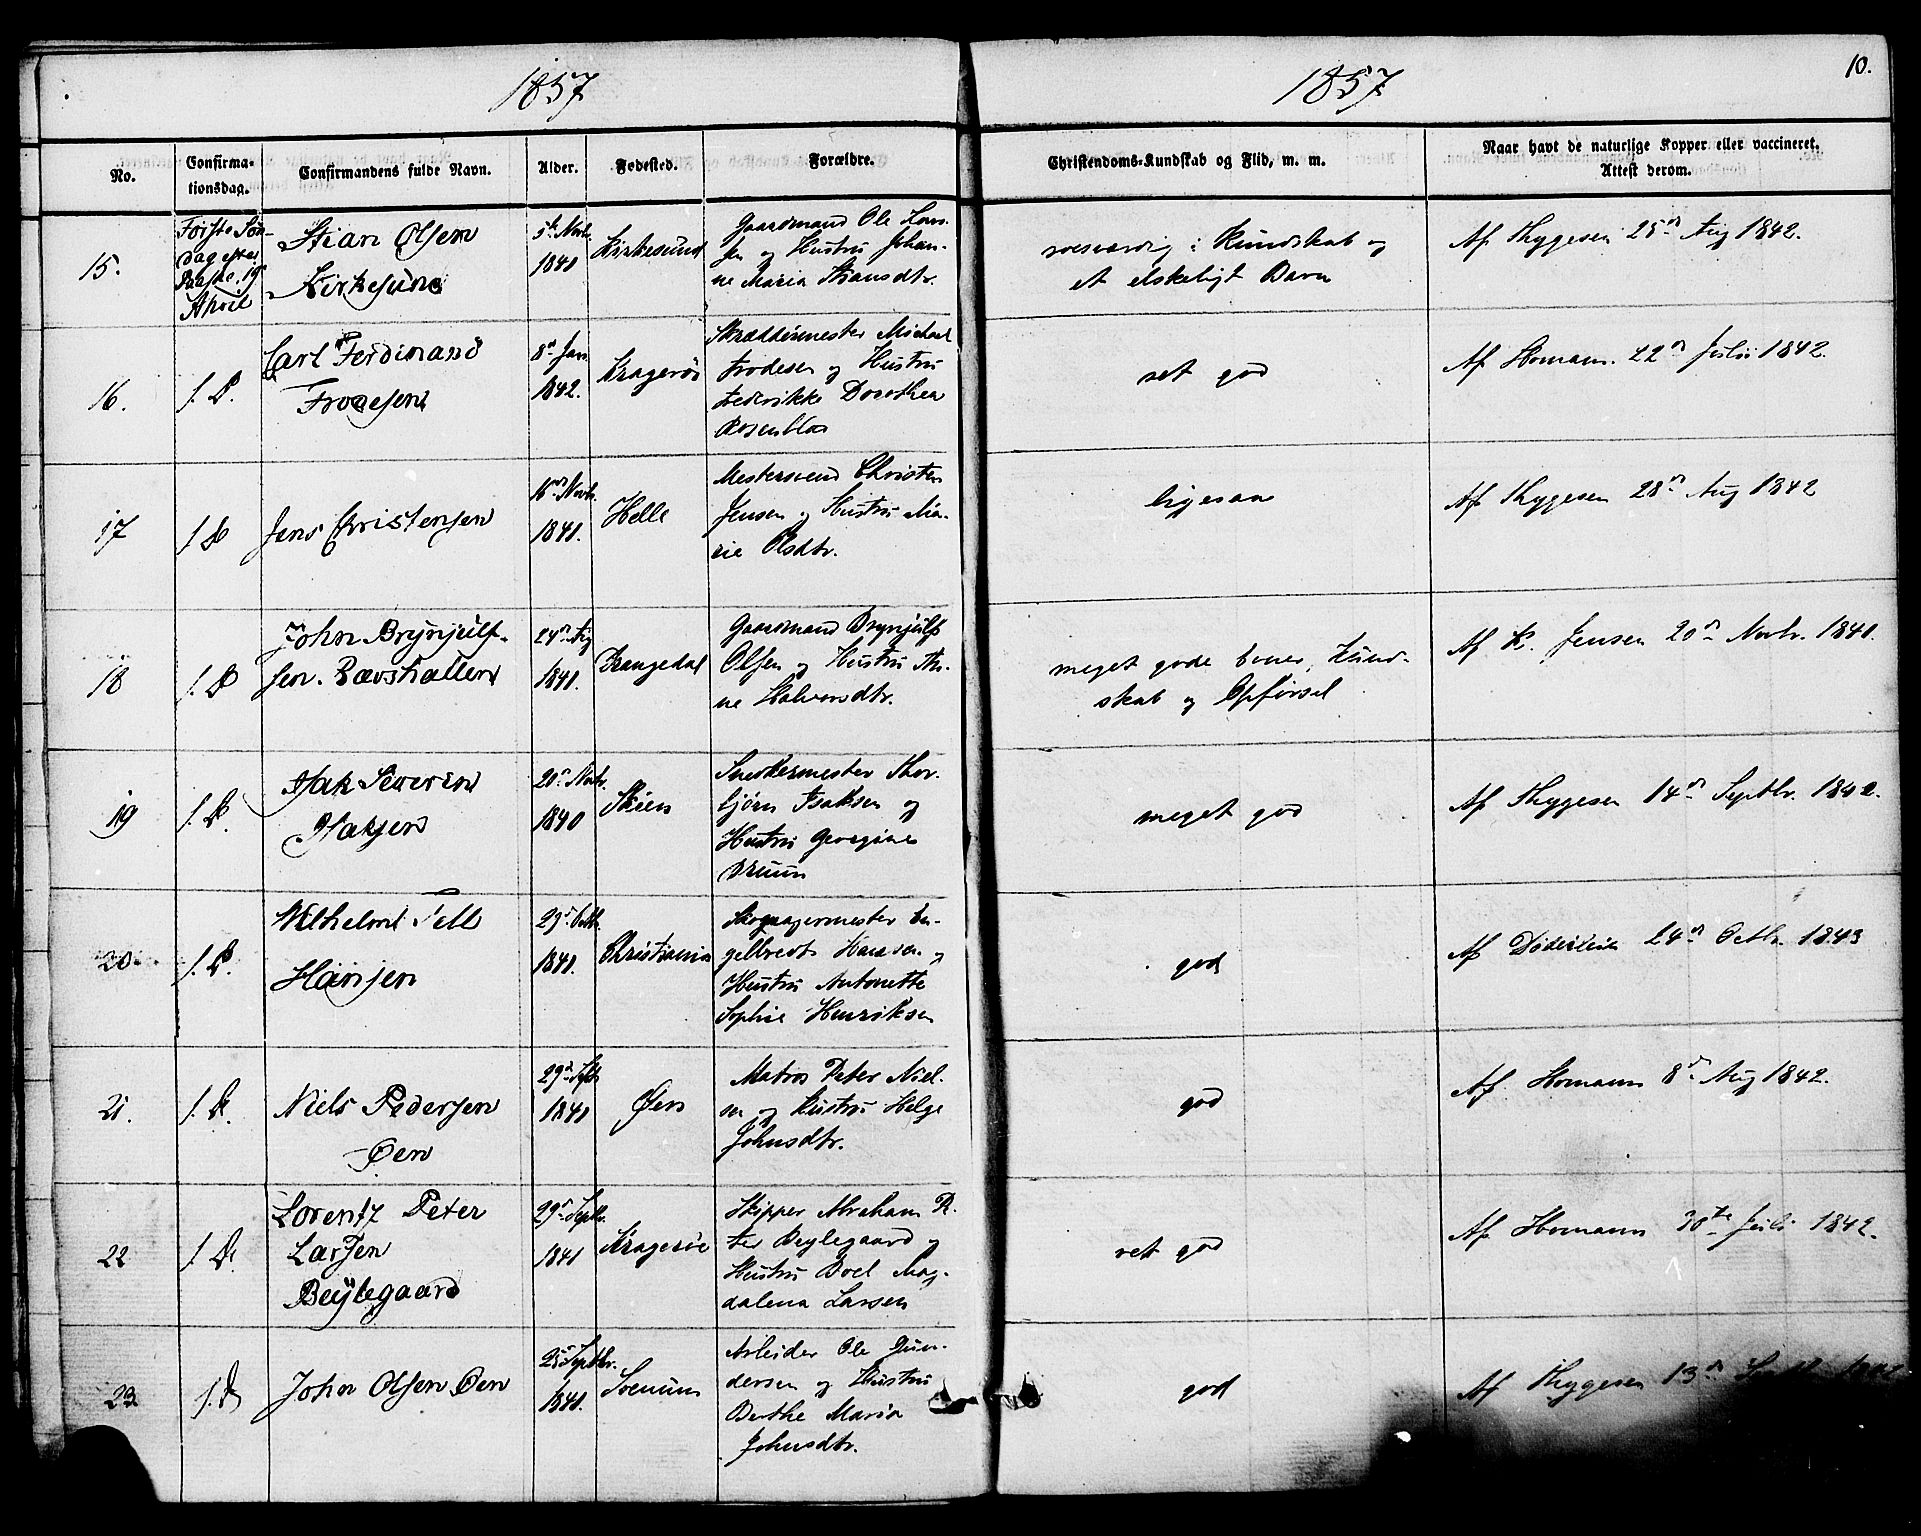 1857
1857
10.
No.
Confirma-
tionsdag.
Confirmandens fulde Navn.
Alder.
Fødested.
Forældre.
Christendoms-Kundskab og Flid, m. m.
Naar havt de naturlige Kopper eller vaccineret.
Attest derom.
15.
Første Søn-
dag efter
Paaske. 19
April
Stian Olsen
Kirkesund
5te Novb.
1841
Kirkesund
Gaardmand Ole Han-
sen og Hustru Johan-
ne Maria Stiansdtr.
rosværdig i Kundskab og
et elskeligt Barn
Af Thygesen 25n Aug 1842.
16.
f. D.
Carl Ferdinand
Frodesen
8n Jan
1842.
Kragerøe
Skræddermester Michael
Frodesen og Hustru
Frederikke Dorothea
Rosenblad
ret god
Af Homann. 22n Julii 1842.
17
f. D
Jens Christensen
16n Novb.
1841.
Helle
Mestersvend Christen
Jensen og Hustru Ma-
rie Olsdtr.
ligesaa
Af Thygesen 28n Aug 1842
18
f. D
John Brynjulf-
sen
24n Aug
1841.
Drangedal
Gaardmand Brynjulf
Olsen og Hustru An-
ne Halvorsdtr.
meget gode Evner, Kund-
skab og Opførsel
Af P. Jensen 20n Novbr. 1841.
19
f. D.
Isak Severin
Isaksen
20n Novbr.
1840
Skien
Snedkermester Thor-
bjørn Isaksen og
Hustru Georgine
Bruun
meget god
Af Thygesen 14n Septbr. 1842.
20
f. D.
Wilhelm Tell
Hansen
29n Octb.
1841.
Christiania
Skomagermester En-
gelbredt Hansen og
Hustru Antonette
Sophie Henriksen
god
Af Döderlein 24n Octbr. 1843
21.
f. D.
Niels Pedersen
Øen
29n Septb
1841
Øen
Matros Peter Niel-
sen og Hustru Helge
Johnsdtr.
god
Af Homann 8n Aug 1842.
22
f. D.
Lorentz Peter
Larsen
Beylegaard
29n Septbr.
1841
Kragerøe
Skipper Abraham P.
ter Beylegaard og
Hustru Boel Mag-
dalena Larsen
ret god
Af Homann 30te Juli 1842.
23.
f. D
John Olsen Øen
25n Septbr.
1841.
Arbeider Ole Gun-
dersen og Hustru
Berthe Maria
Johnsdtr.
god
Af Thygesen 13n